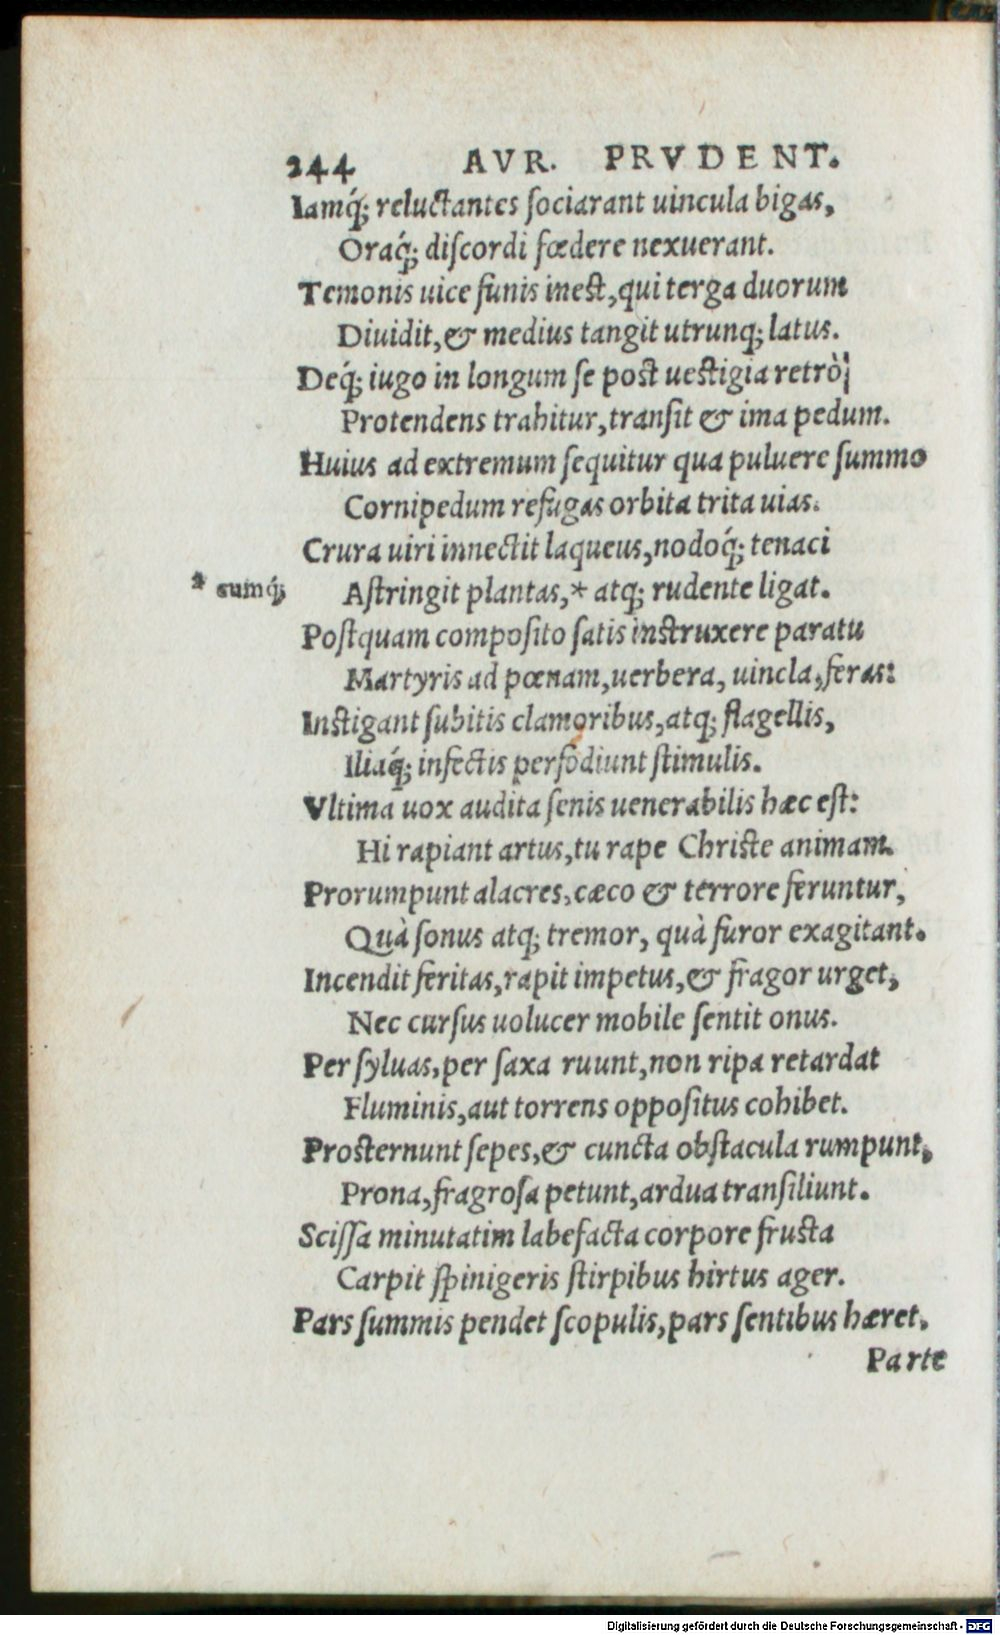 244 AVR. PRVDENT.
Iamq́; reluctantes ſociarant uincula bigas,
Oraq́; diſcordi fœdere nexuerant.
Temonis uice funis ineſt, qui terga duorum
Diuidit, & medius tangit utrunq; latus.
Deq́; iugo in longum ſe poſt ueſtigia retrò
Protendens trahitur, tranſit & ima pedum.
Huius ad extremum ſequitur qua puluere ſummo
Cornipedum refugas orbita trita uias.
Crura uiri innectit laqueus, nodoq́; tenaci
* cumq́; Aſtringit plantas,* atq; rudente ligat.
Poſtquam compoſito ſatis inſtruxere paratu
Martyris ad pœnam, uerbera, uincla, feras:
Inſtigant ſubitis clamoribus, atq; flagellis,
Iliaq́; infectis perfodiunt ſtimulis.
Vltima uox audita ſenis uenerabilis hæc eſt:
Hi rapiant artus, tu rape Chriſte animam.
Prorumpunt alacres, cæco & terrore feruntur,
Quà ſonus atq; tremor, quà furor exagitant.
Incendit feritas, rapit impetus, & fragor urget,
Nec curſus uolucer mobile ſentit onus.
Per ſyluas, per ſaxa ruunt, non ripa retardat
Fluminis, aut torrens oppoſitus cohibet.
Proſternunt ſepes, & cuncta obſtacula rumpunt,
Prona, fragroſa petunt, ardua tranſiliunt.
Sciſſa minutatim labefacta corpore fruſta
Carpit ſpinigeris ſtirpibus hirtus ager.
Pars ſummis pendet ſcopulis, pars ſentibus hæret.
Parte
Digitalisierung gefördert durch die Deutsche Forschungsgemeinschaft - DFG